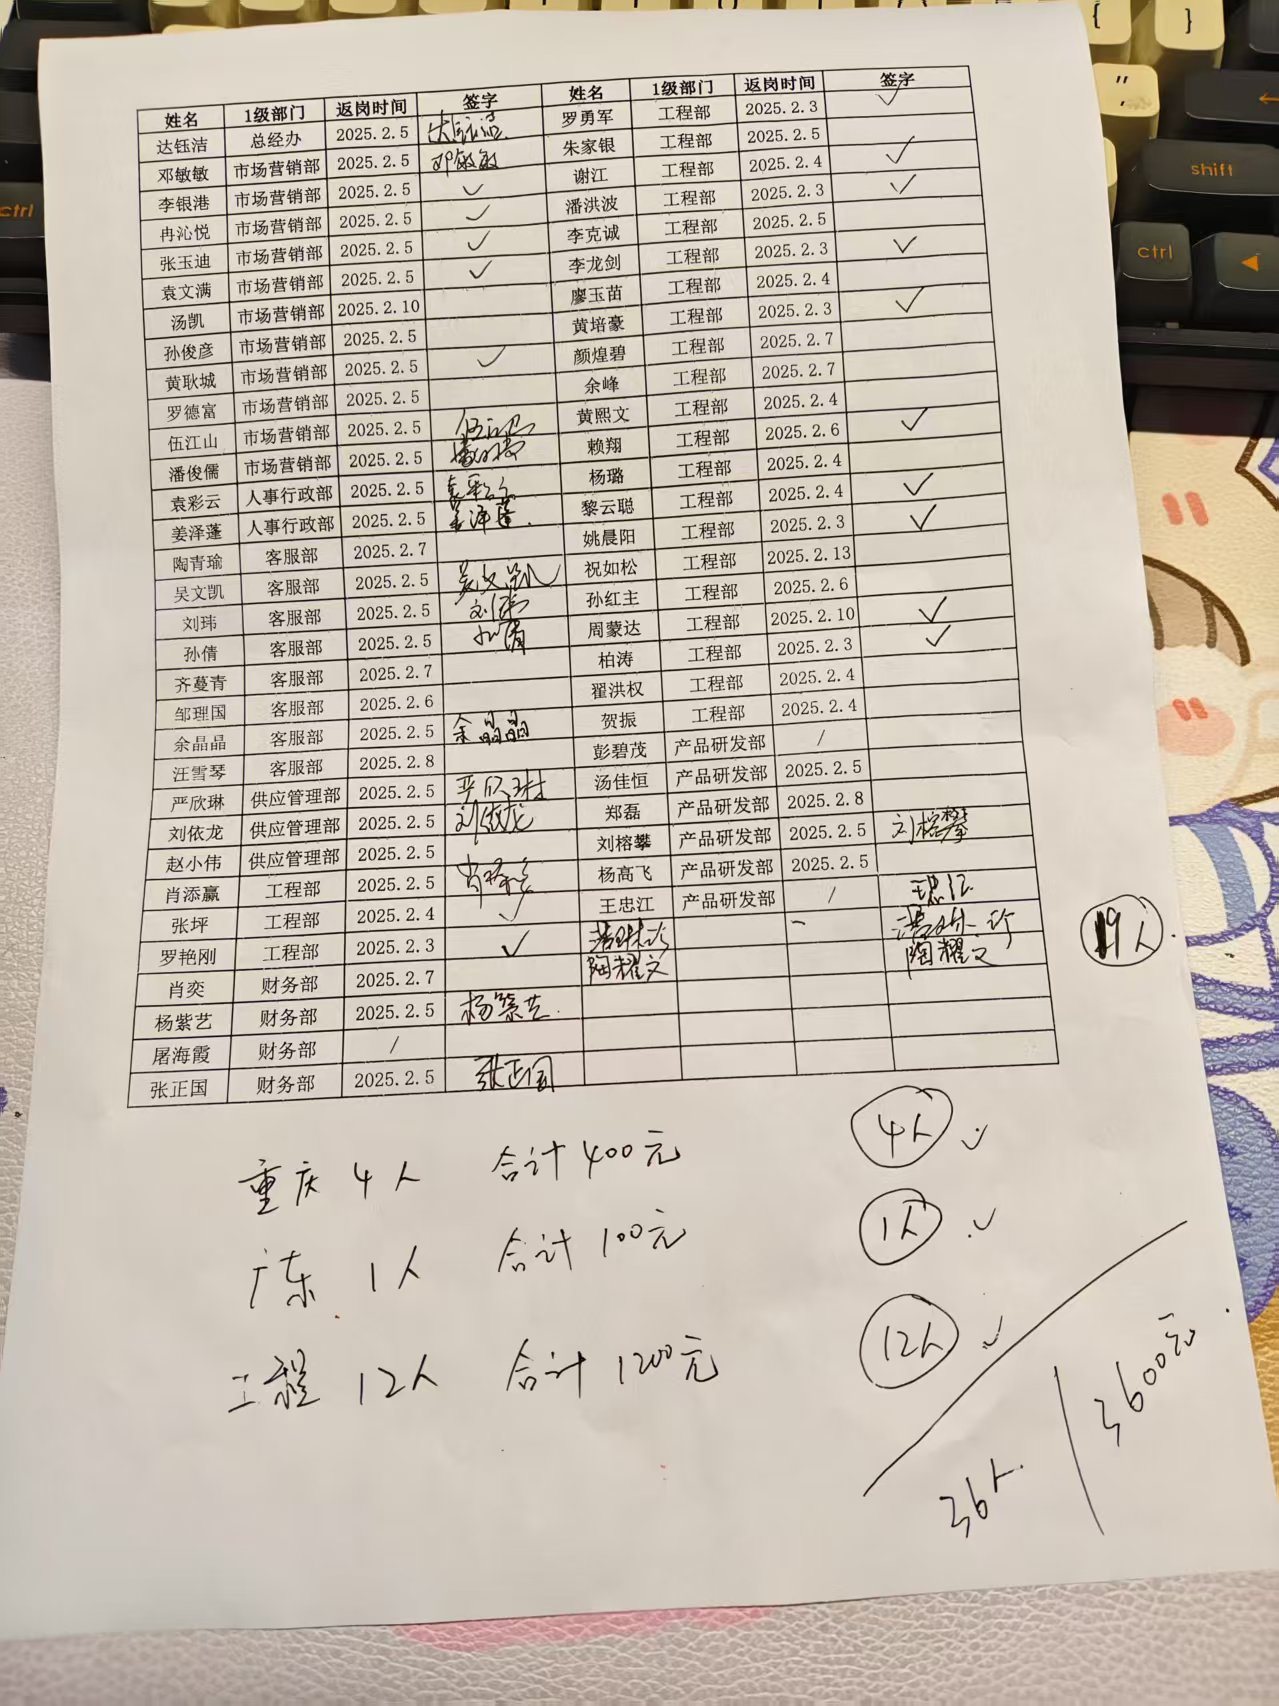 姓名 1级部门 返岗时间 签字 姓名 1级部门 返岗时间 签字
达钰洁 总经办 2025.2.5 达钰洁 罗勇军 工程部 2025.2.3 ✓
邓敏敏 市场营销部 2025.2.5 邓敏敏 朱家银 工程部 2025.2.5
李银港 市场营销部 2025.2.5 ✓ 谢江 工程部 2025.2.4 ✓
冉沁悦 市场营销部 2025.2.5 ✓ 潘洪波 工程部 2025.2.3 ✓
张玉迪 市场营销部 2025.2.5 ✓ 李克诚 工程部 2025.2.5
袁文满 市场营销部 2025.2.5 ✓ 李龙剑 工程部 2025.2.3 ✓
汤凯 市场营销部 2025.2.10 廖玉苗 工程部 2025.2.4
孙俊彦 市场营销部 2025.2.5 黄培豪 工程部 2025.2.3 ✓
黄耿城 市场营销部 2025.2.5 ✓ 颜煌碧 工程部 2025.2.7
罗德富 市场营销部 2025.2.5 余峰 工程部 2025.2.7
伍江山 市场营销部 2025.2.5 伍江山 黄熙文 工程部 2025.2.4
潘俊儒 市场营销部 2025.2.5 潘俊儒 赖翔 工程部 2025.2.6 ✓
袁彩云 人事行政部 2025.2.5 袁彩云 杨璐 工程部 2025.2.4
姜泽蓬 人事行政部 2025.2.5 姜泽蓬. 黎云聪 工程部 2025.2.4 ✓
陶青瑜 客服部 2025.2.7 姚晨阳 工程部 2025.2.3 ✓
吴文凯 客服部 2025.2.5 吴文凯 祝如松 工程部 2025.2.13
刘玮 客服部 2025.2.5 刘玮 孙红主 工程部 2025.2.6
孙倩 客服部 2025.2.5 孙倩 周蒙达 工程部 2025.2.10 ✓
齐蔓青 客服部 2025.2.7 柏涛 工程部 2025.2.3 ✓
邹理国 客服部 2025.2.6 翟洪权 工程部 2025.2.4
余晶晶 客服部 2025.2.5 余晶晶 贺振 工程部 2025.2.4
汪雪琴 客服部 2025.2.8 彭碧茂 产品研发部 /
严欣琳 供应管理部 2025.2.5 严欣琳 汤佳恒 产品研发部 2025.2.5
刘依龙 供应管理部 2025.2.5 刘依龙 郑磊 产品研发部 2025.2.8
赵小伟 供应管理部 2025.2.5 刘榕攀 产品研发部 2025.2.5 刘榕攀
肖添赢 工程部 2025.2.5 肖添赢 杨高飞 产品研发部 2025.2.5
张坪 工程部 2025.2.4 ✓ 王忠江 产品研发部 /
罗艳刚 工程部 2025.2.3 ✓
肖奕 财务部 2025.2.7 陶耀文 陶耀文
杨紫艺 财务部 2025.2.5 杨紫艺.
屠海霞 财务部 /
张正国 财务部 2025.2.5 张正国
19人.
重庆 4人 合计400元 4人 ✓
广东 1人 合计100元 1人 ✓
工程 12人 合计1200元 12人 ✓
36人. 3600元.
{ }
" '
shift
ctrl
ctrl